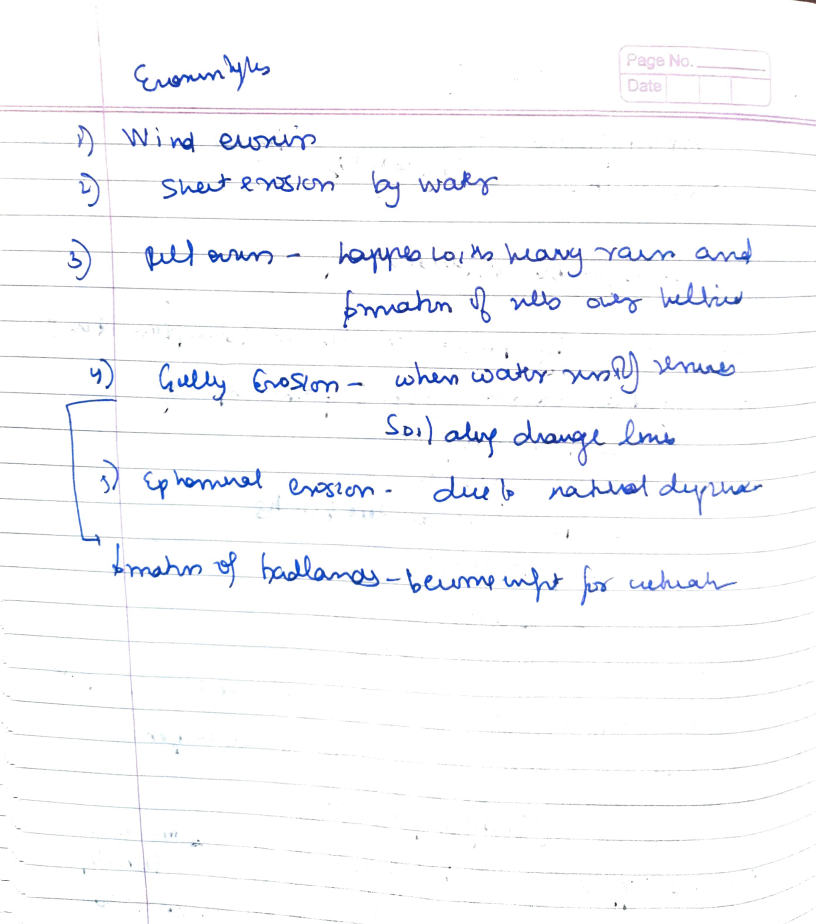 Page No.
Date
Erosion types
1) Wind erosion
2) Sheet erosion by water
3) Rill erosion - happes with heavy rain and
formation of rills over hillside
4) Gully Erosion - when water runoff removes
Soil along drainage lines
5) Ephemeral erosion - due to natural depression
formation of badlands - become unfit for cultivation